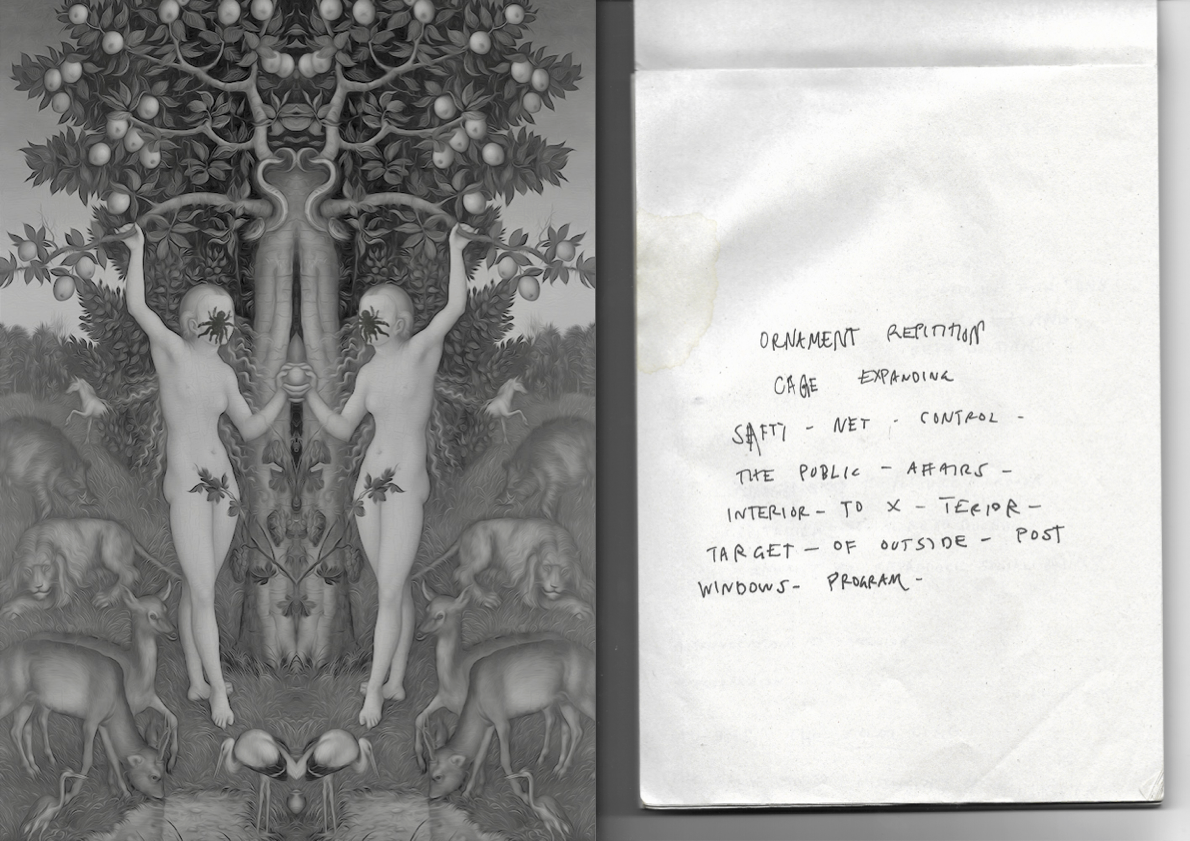 ORNAMENT REPITITION
CAGE EXPANDING
SAFTY - NET - CONTROL -
THE PUBLIC - AFFAIRS -
INTERIOR - TO X - TERIOR -
TARGET - OF OUTSIDE - POST
WINDOWS - PROGRAM -